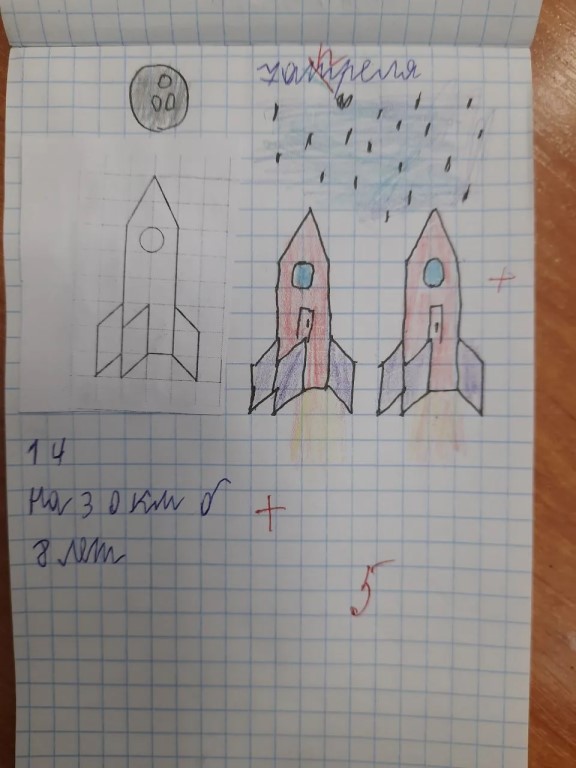 7 апреля
+
14
на 30 км б
+
8 лет
5